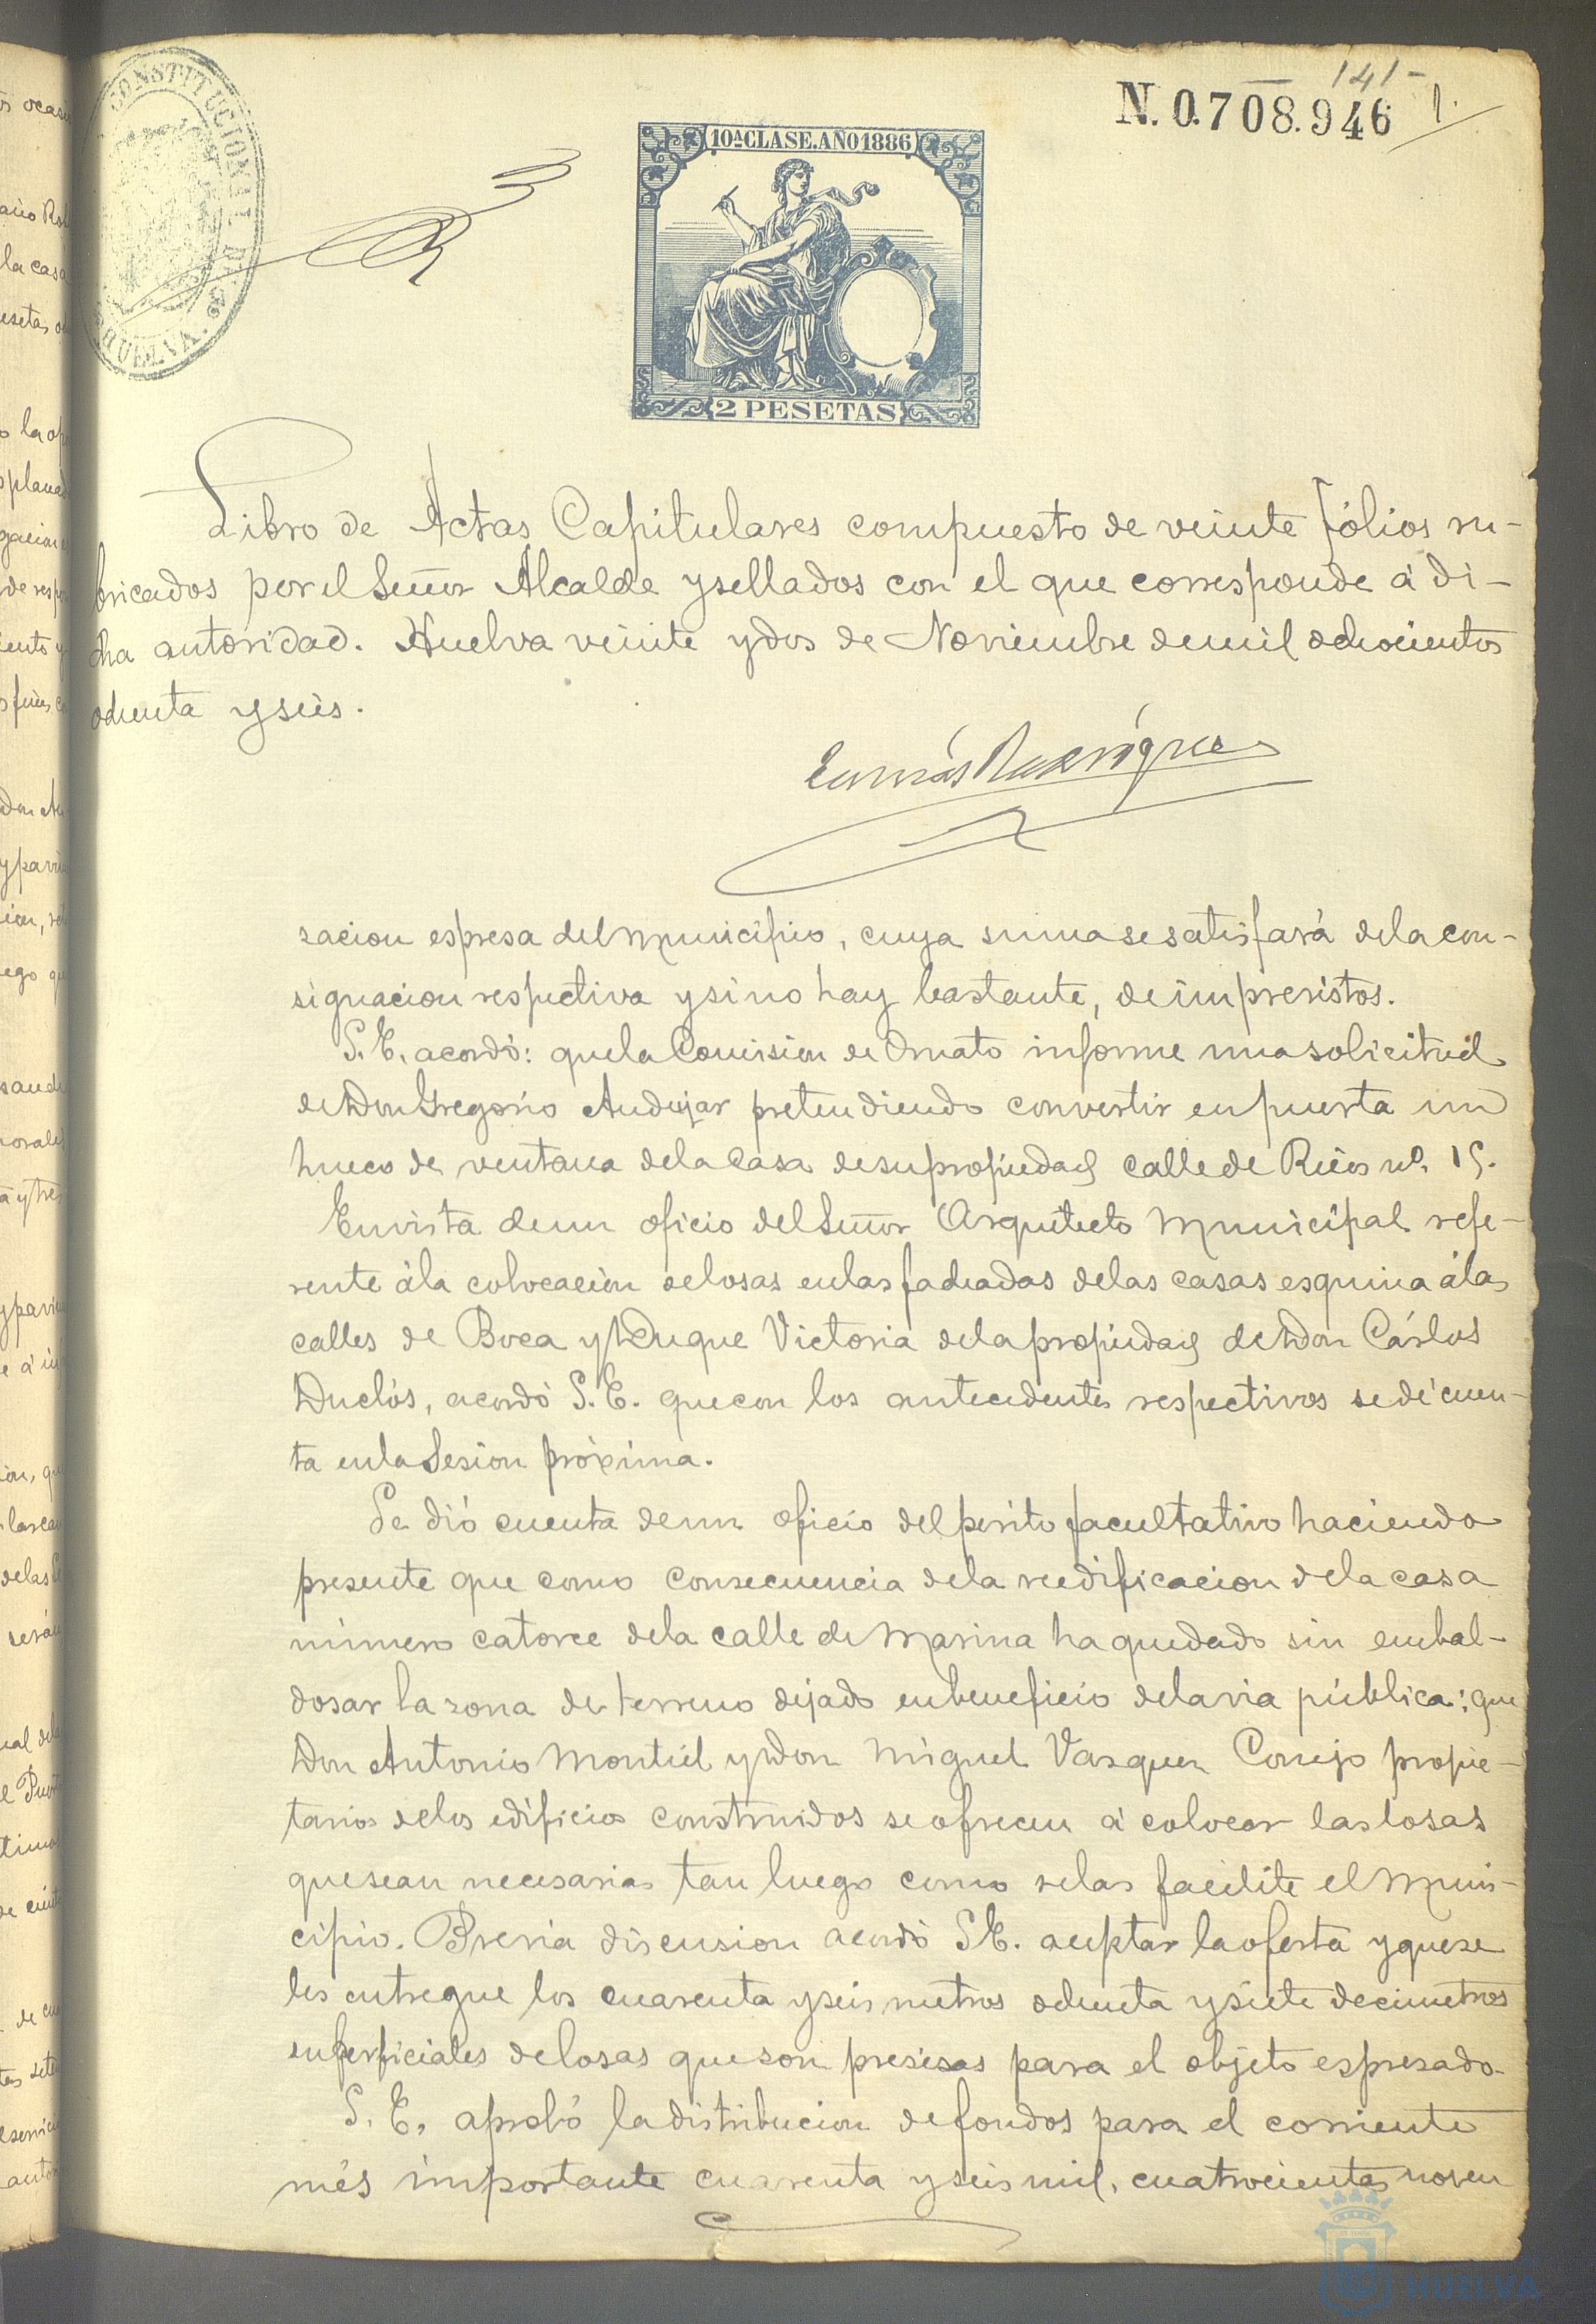 141-
N. 0.708.946 1.
CONSTITUCIONAL DE
HUELVA.
10ª CLASE. AÑO 1886
2 PESETAS
Libro de Actas Capitulares compuesto de veinte fólios ru-
bricados por el Señor Alcalde y sellados con el que corresponde á di-
cha autoridad. Huelva veinte y dos de Noviembre de mil ochocientos
ochenta y seis.
Tomás Rodríguez
zacion espresa del Municipio, cuya suma se satisfará de la con-
signacion respectiva y si no hay bastante, de imprevistos.
S. E. acordó: que la Comision de Ornato informe una solicitud
de Don Gregorio Andujar pretendiendo convertir en puerta un
hueco de ventana de la casa de su propiedad calle de Rico nº. 15.
En vista de un oficio del Señor Arquitecto Municipal refe-
rente á la colocación de losas en las fachadas de las casas esquina á las
calles de Boca y Duque Victoria de la propiedad de Don Cárlos
Duclós, acordó S. E. que con los antecedentes respectivos se dé cuen-
ta en la Sesion próxima.
Se dió cuenta de un oficio del perito facultativo haciendo
presente que como consecuencia de la reedificacion de la casa
número catorce de la calle de Marina ha quedado sin embal-
dosar la zona de terreno dejado en beneficio de la via pública: que
Don Antonio Montiel y Don Miguel Vazquez Conejo propie-
tarios de los edificios construidos se ofrecen á colocar las losas
que sean necesarias tan luego como se las facilite el Muni-
cipio. Prévia discusion acordó S. E. aceptar la oferta y que se
les entregue los cuarenta y seis metros ochenta y siete decimetros
superficiales de losas que son presisas para el objeto espresado.
S. E. aprobó la distribucion de fondos para el corriente
més importante cuarenta y seis mil, cuatrocientas noven
HUELVA